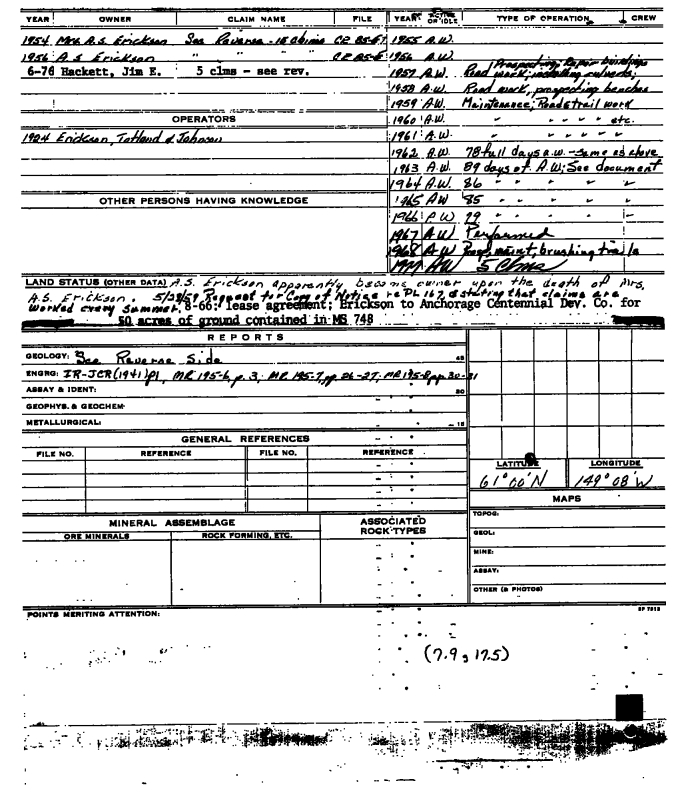 YEAR OWNER CLAIM NAME FILE YEAR ACTIVE OR IDLE TYPE OF OPERATION CREW
1954 Mrs. A.S. Erickson See Reverse - 18 claims 1955 A.W.
1956 A.S. Erickson " " " 1956 A.W.
6-76 Hackett, Jim E. 5 clms - see rev. 1957 A.W. Prospecting, Repair buildings
Road work, including culverts;
1958 A.W. Road work, prospecting benches
1959 A.W. Maintenance; Road & trail work
OPERATORS 1960 A.W. " " " " etc.
1924 Erickson, Totland & Johnson 1961 A.W. " " " "
1962 A.W. 78 full days a.w. - same as above
1963 A.W. 89 days of A.W; See document
1964 A.W. 86 " " " " "
OTHER PERSONS HAVING KNOWLEDGE 1965 AW 85 " " " " "
1966 AW 79 " " " " "
1967 AW Performed
1968 AW Prosp, maint, brushing trails
AW 5 Clms
LAND STATUS (OTHER DATA) A.S. Erickson apparently became owner upon the death of Mrs.
A.S. Erickson. Request for Copy of Notice re PL 167 stating that claims are
worked every summer. 8-66: lease agreement; Erickson to Anchorage Centennial Dev. Co. for
50 acres of ground contained in MS 748
REPORTS
GEOLOGY: See Reverse Side 45
ENGRG: IR-JCR (1941) p1, MR 195-6, p. 3; MR 195-7, pp. 26-27; MR 195-8, pp. 30-31
ASSAY & IDENT: 30
GEOPHYS. & GEOCHEM:
METALLURGICAL: 15
GENERAL REFERENCES
FILE NO. REFERENCE FILE NO. REFERENCE
LATITUDE LONGITUDE
61° 00' N 149° 08' W
MAPS
TOPOG:
MINERAL ASSEMBLAGE ASSOCIATED ROCK TYPES
ORE MINERALS ROCK FORMING, ETC.
GEOL:
MINE:
ASSAY:
OTHER (& PHOTOS)
POINTS MERITING ATTENTION:
(7.9, 17.5)